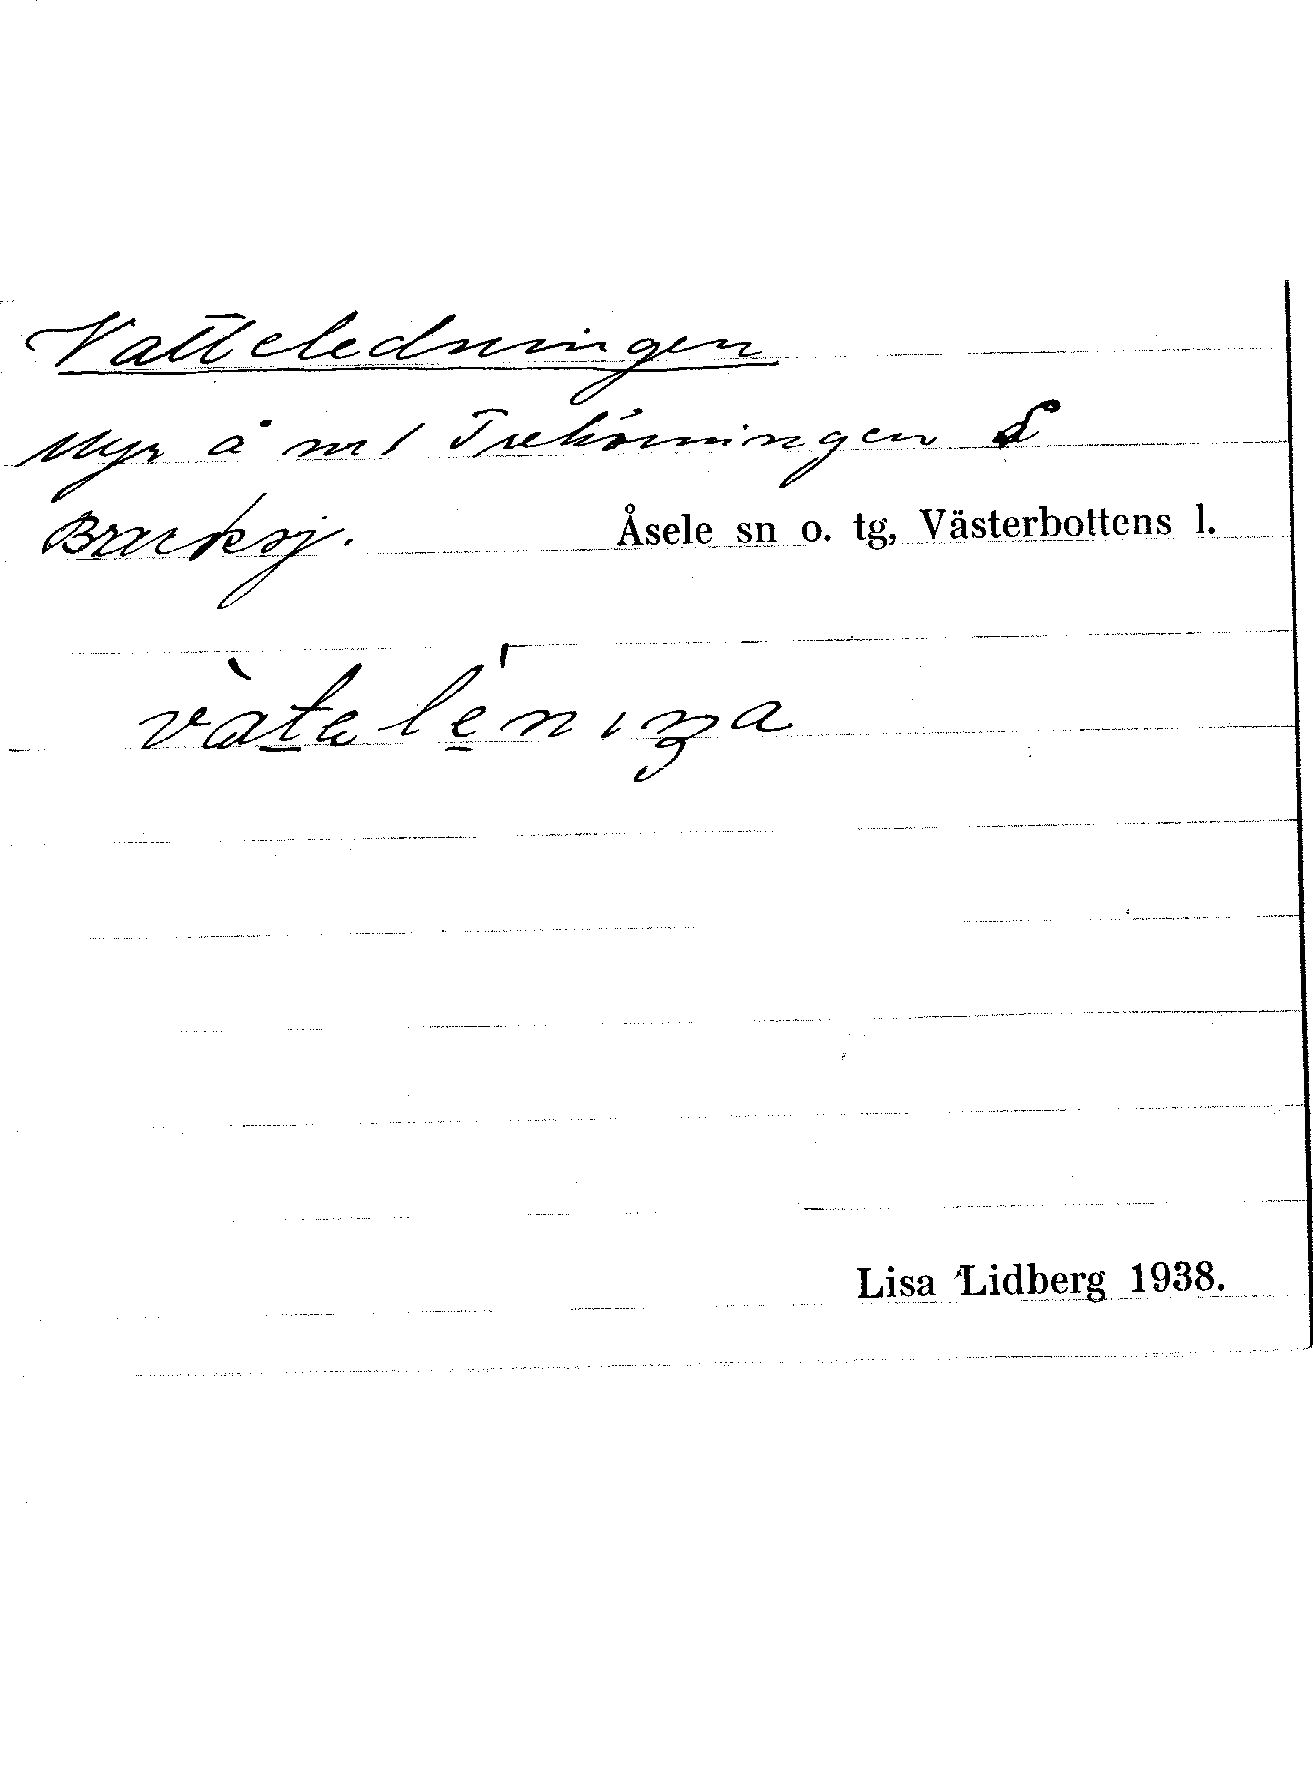 Vatteledningen
Myr å nr 1 Trehörningen S
Bracksj. Åsele sn o. tg, Västerbottens l.
vàtaléniŋa
Lisa Lidberg 1938.